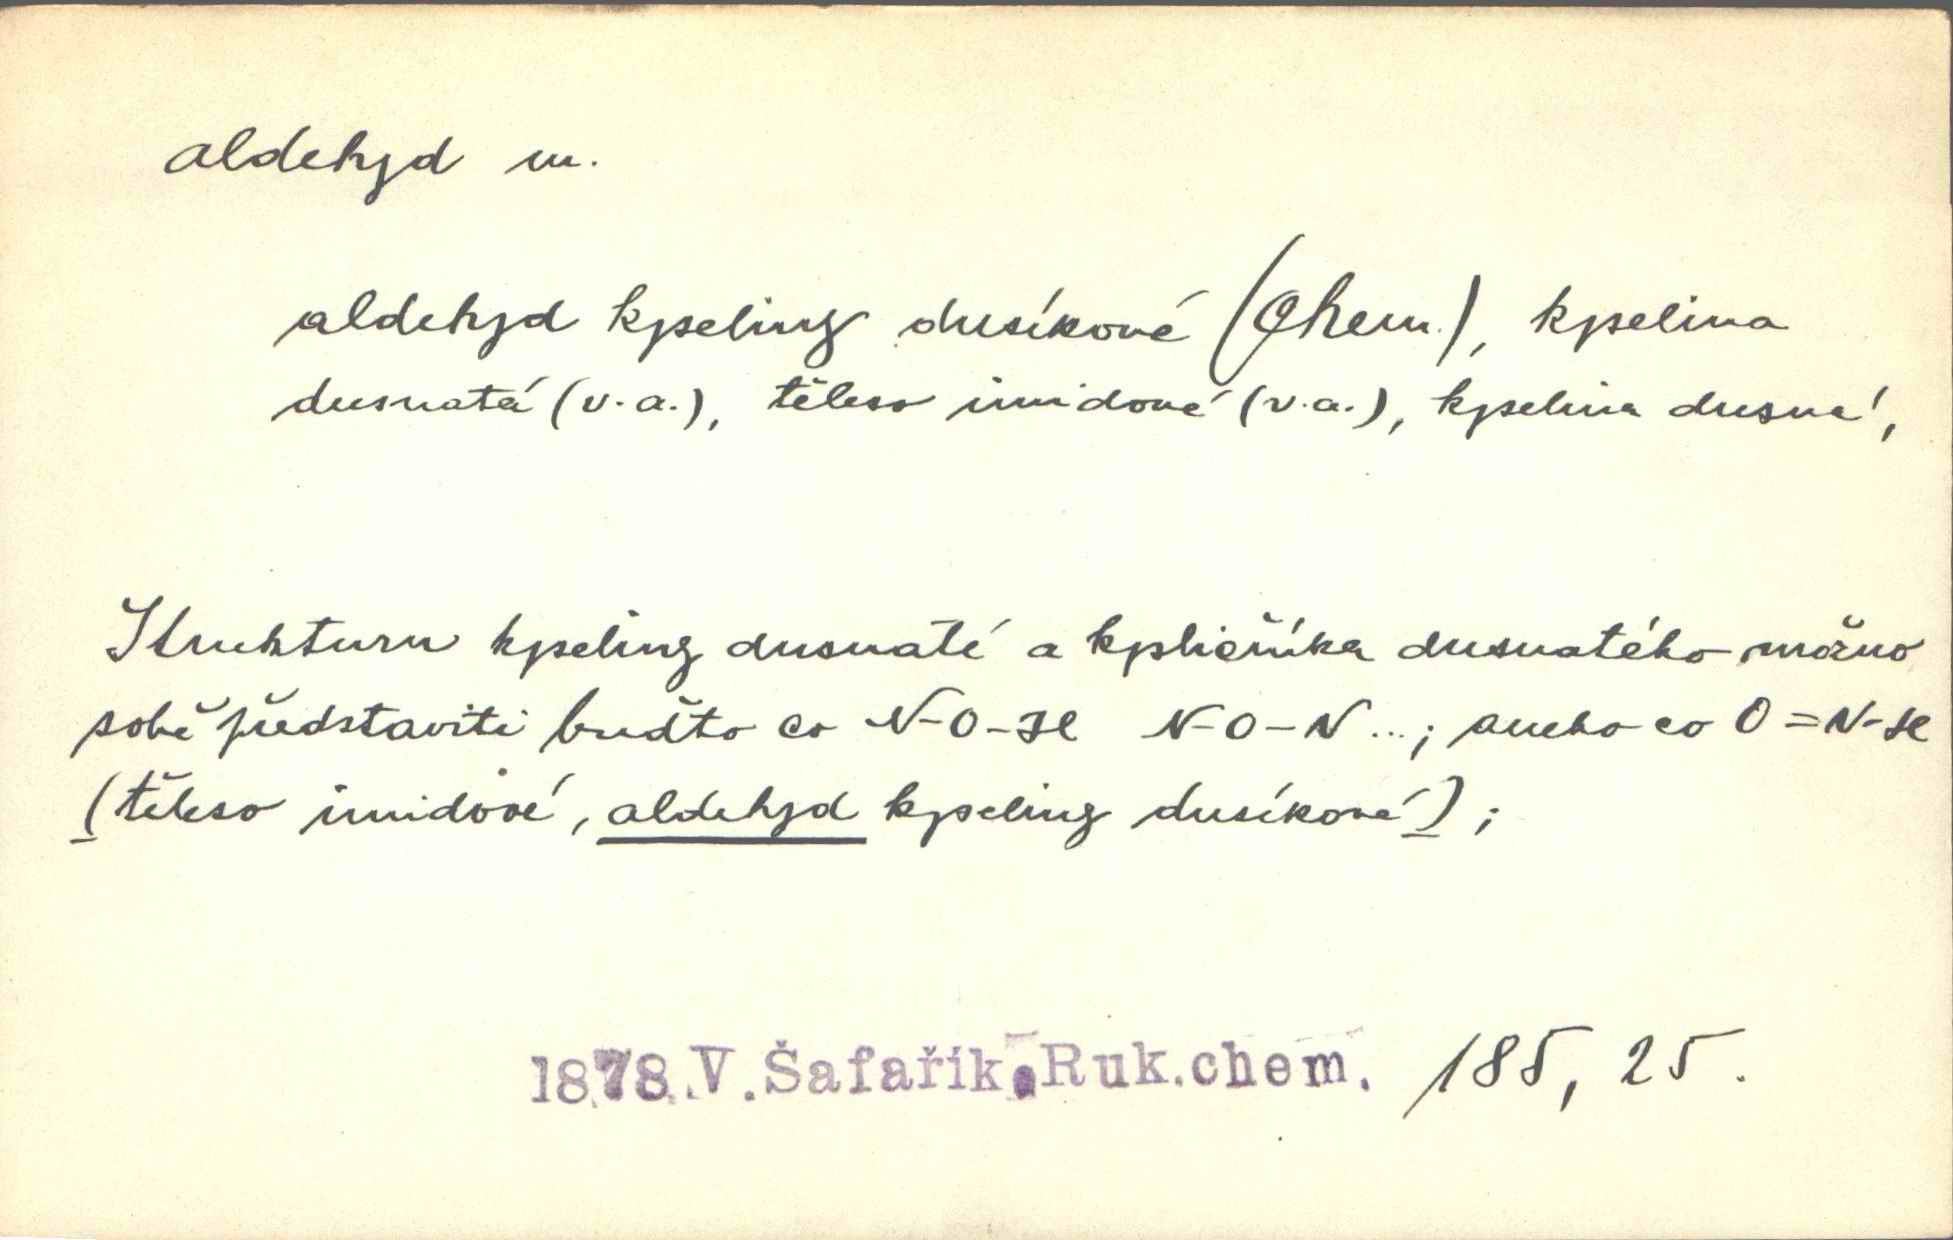 aldehyd m.
aldehyd kyseliny dusíkové (Chem.), kyselina
dusnatá (v.a.), těleso imidové (v.a.), kyselina dusná,
Strukturu kyseliny dusnaté a kysličníka dusnatého možno
sobě představiti buďto co N-O-H N-O-N...; anebo co O=N-H
(těleso imidové, aldehyd kyseliny dusíkové);
1878.V.Šafařík.Ruk.chem. 185, 25.